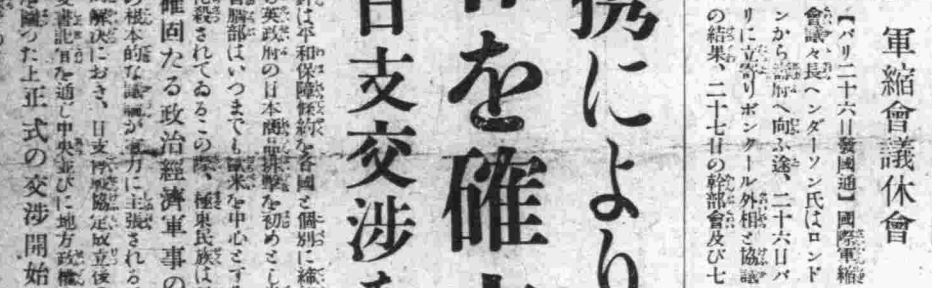 軍縮會議休會
【パリ二十六日發國通】國際軍縮
會議々長ヘンダーソン氏はロンド
ンから壽府へ向ふ途、二十六日パ
リに立寄りボンクール外相と協議
の結果、二十七日の幹部會及び七
携により
を確
日支交渉を
針は平和保障條約を各國と個別に締
の英政府の日本商品排撃を初めとし
首腦部はいつまでも歐米を中心とす
化殺されてゐるこの際、極東民族は
確固たる政治經濟軍事の
の根本的な議論が有力に主張される
解決におき、日支停戰協定成立後
を通し中央並びに地方政權
を圖つた上正式の交渉開始